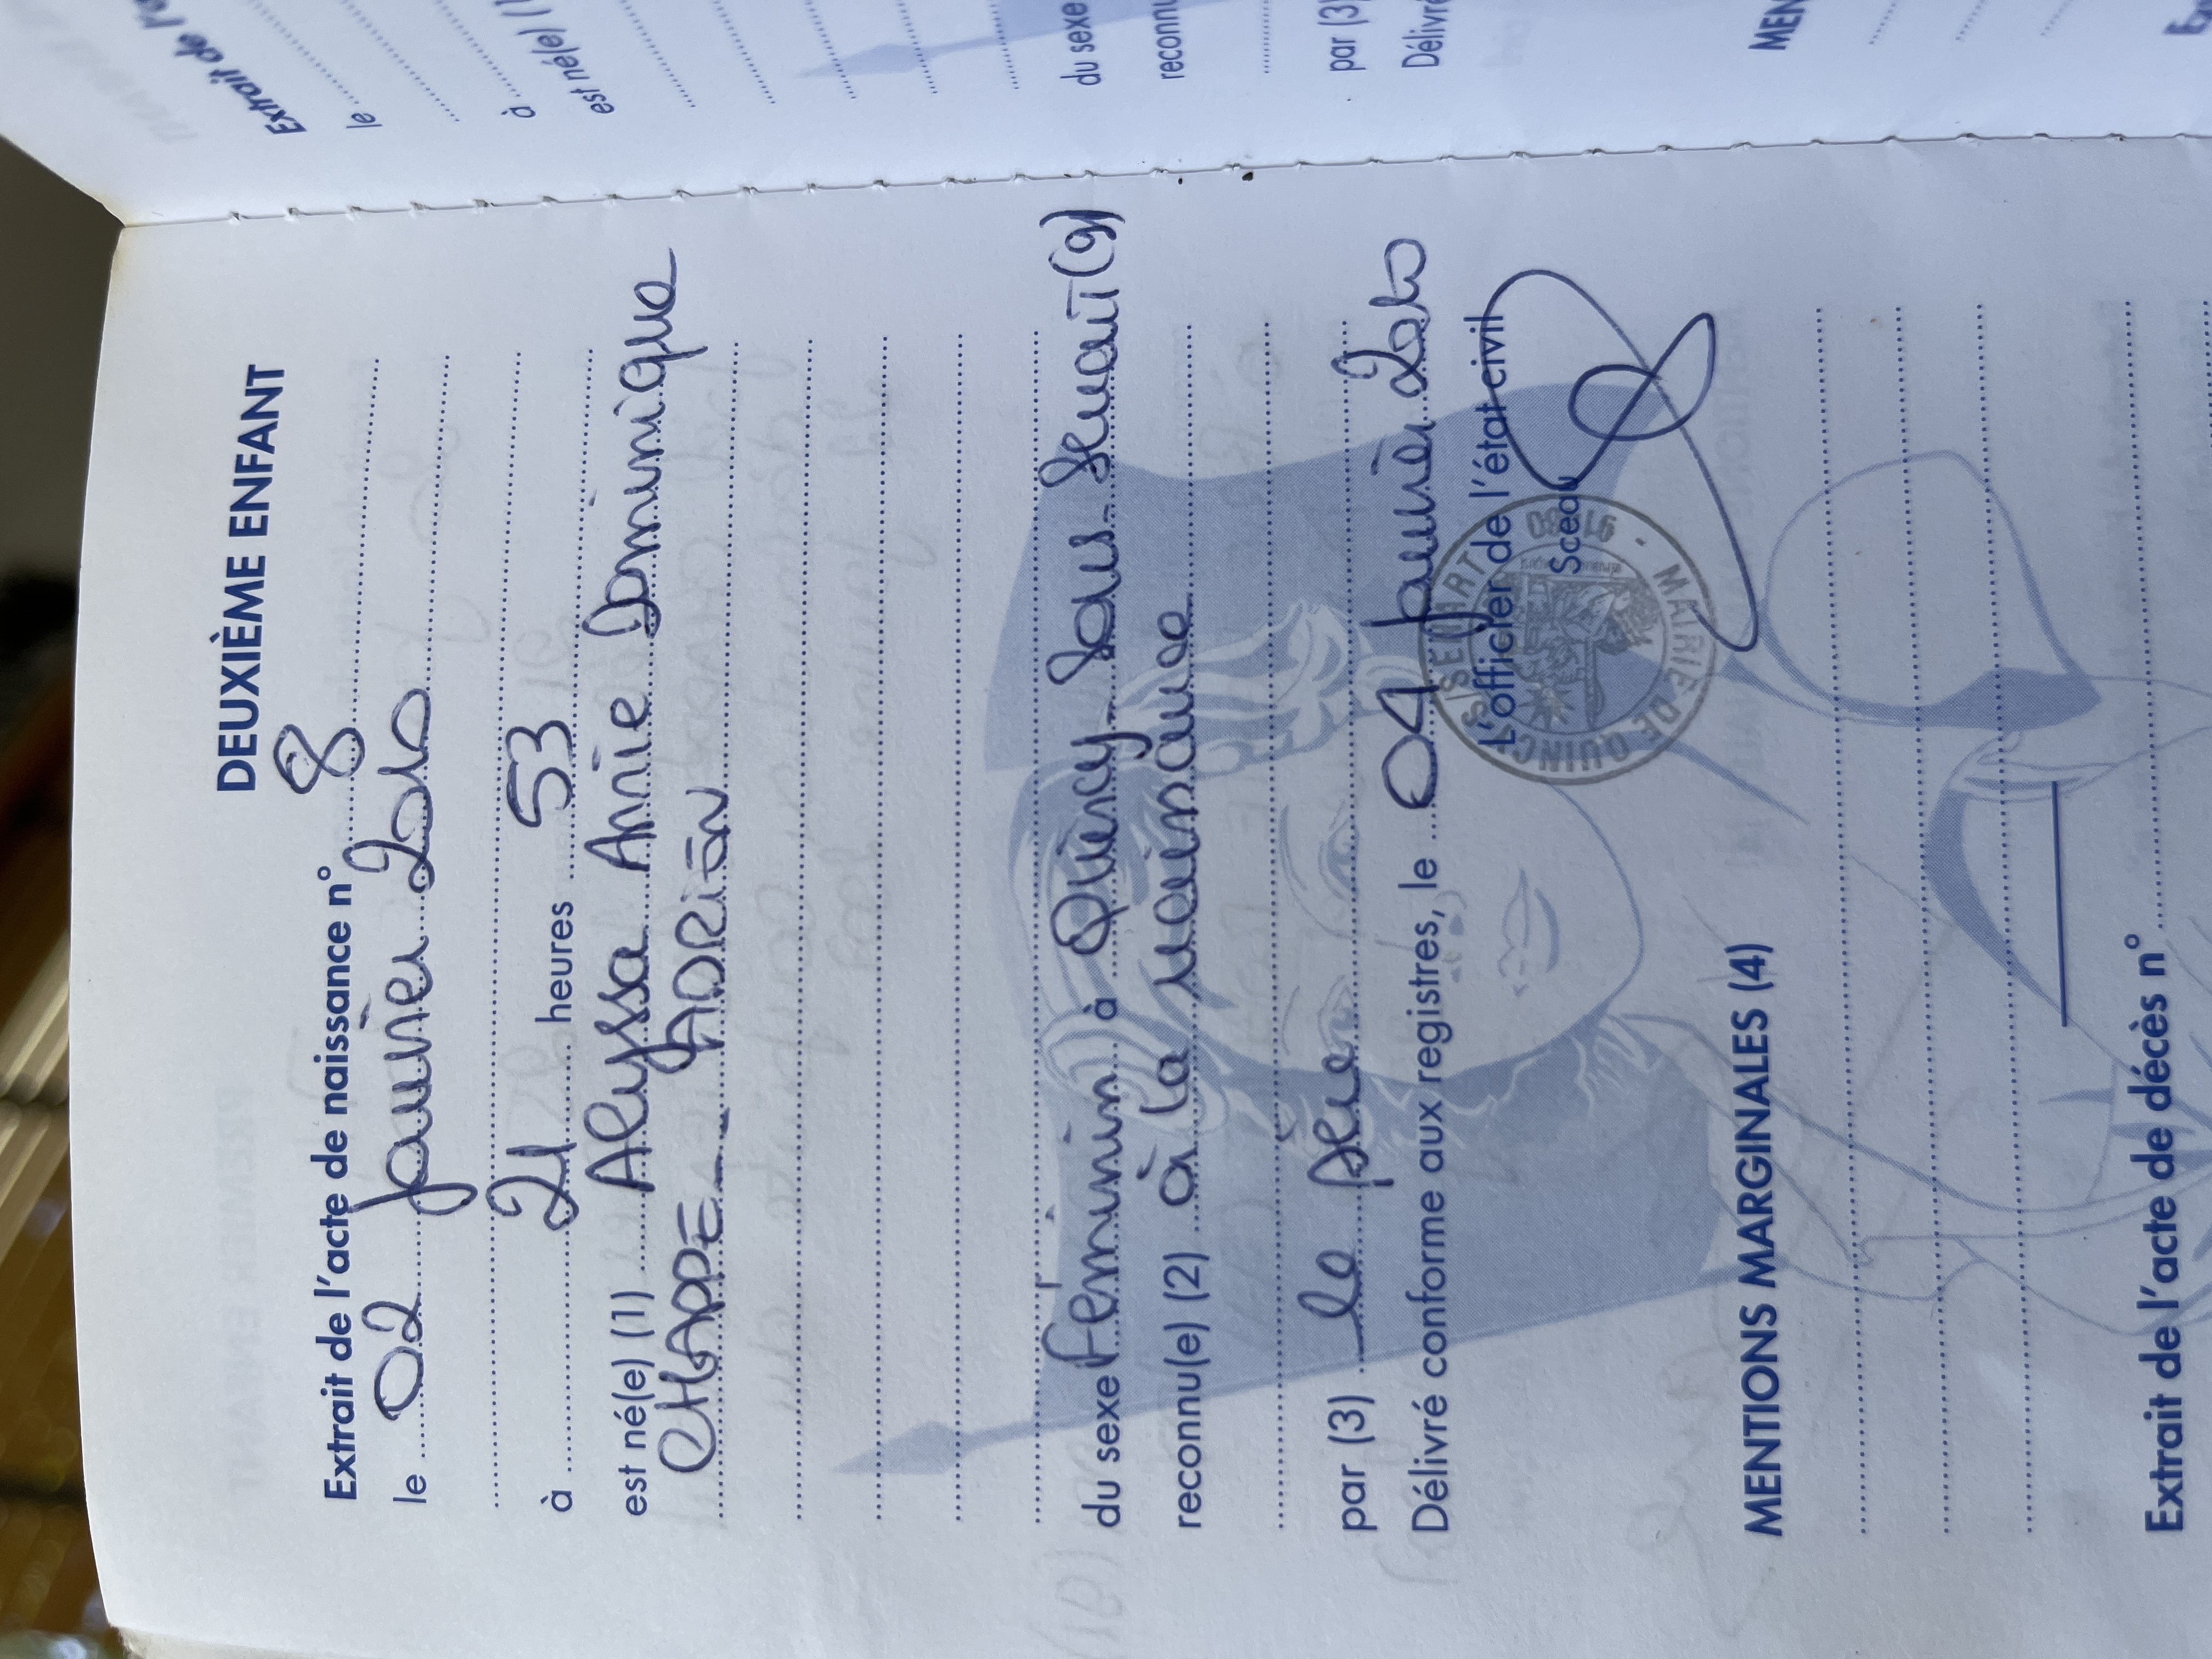 DEUXIÈME ENFANT
Extrait de l'acte de naissance n° 8
le 02 janvier 2010
à 21 heures 53
est né(e) (1) Alyssa Annie Dominique
CHAPPE ADRIEN
du sexe Féminin à Quincy-Sous-Sénart (91)
reconnu(e) (2) à la naissance
par (3) le père
Délivré conforme aux registres, le 04 janvier 2010
L'officier de l'état civil
Sceau
MAIRIE DE QUINCY S/SÉNART - 91480
MENTIONS MARGINALES (4)
Extrait de l'acte de décès n°
le
à
est né(e) (1
du sexe
reconnu
par (3)
Délivré
MEN